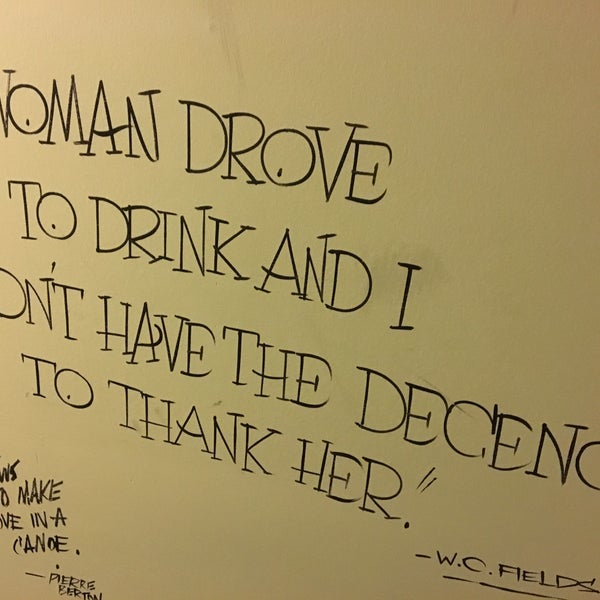 WOMAN DROVE
TO DRINK AND I
ON'T HAVE THE DECENC
TO THANK HER."
-W.C. FIELDS
WS
O MAKE
OVE IN A
CANOE.
- PIERRE
BERTON